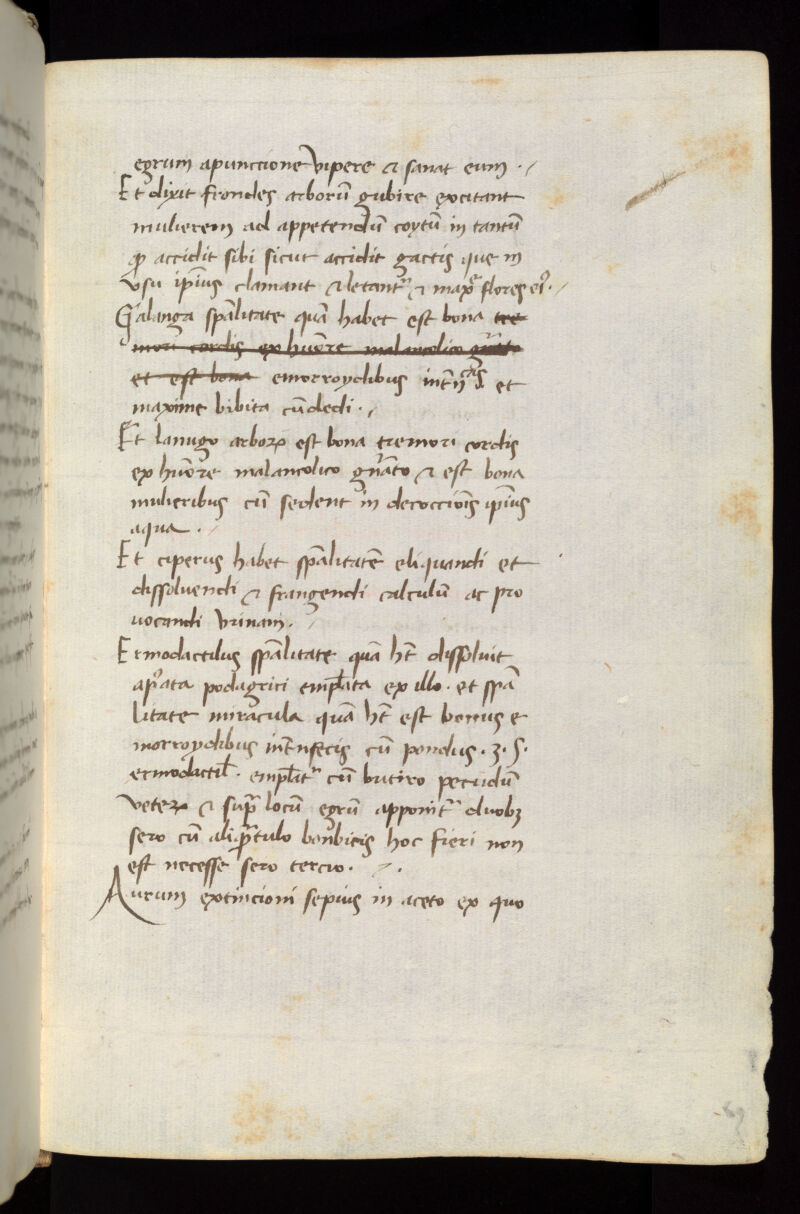 egrum apunccione vipere & sanat eum ·/
Et dixit frondes arborū gubire excitant
mulierem ad appetendū coytū in tantū
ꝙ accidit sibi sicut accidit gactis que in
vsu ipīus clamant & letant᷑ & maxͤ flores eiꝰ·/
Galanga spālitate quā habet est bona tre
mori cordis ex huōre malancolico gn̄ato
et est bona emorroydibus intn̄cis et
maxime bibita cū dedi ·/
Et lanugo arboꝝ est bona tremori cordis
ex huōre malancolico gn̄ato & est bona
mulieribus cū sedent in decoccioīs ipīus
aqua ·/
Et ciperus habet spālitatē eliquandi et
dissoluendi & frangendi calculū ac pro
uocandi vrinam ·/
Ermodactilus spālitate quā hт̄ dissoluit
apꝰata podagrici emplāta ex illo · et spā
litate miracula quā ht̄ est bonus e
morroydibus intn̄secis cū pondus · ʒ · ẜ ·
ermodactil̄ · emplāt᷑ cū butiro pecudū
veteꝝ & sup̄ locū egrū apponit᷑ duobꝫ
sero cū aliq̄ntulo bonbicis hoc fieri non
est necesse sero tercio · /·
Aurum extincioni sepius in aceto ex quo
69